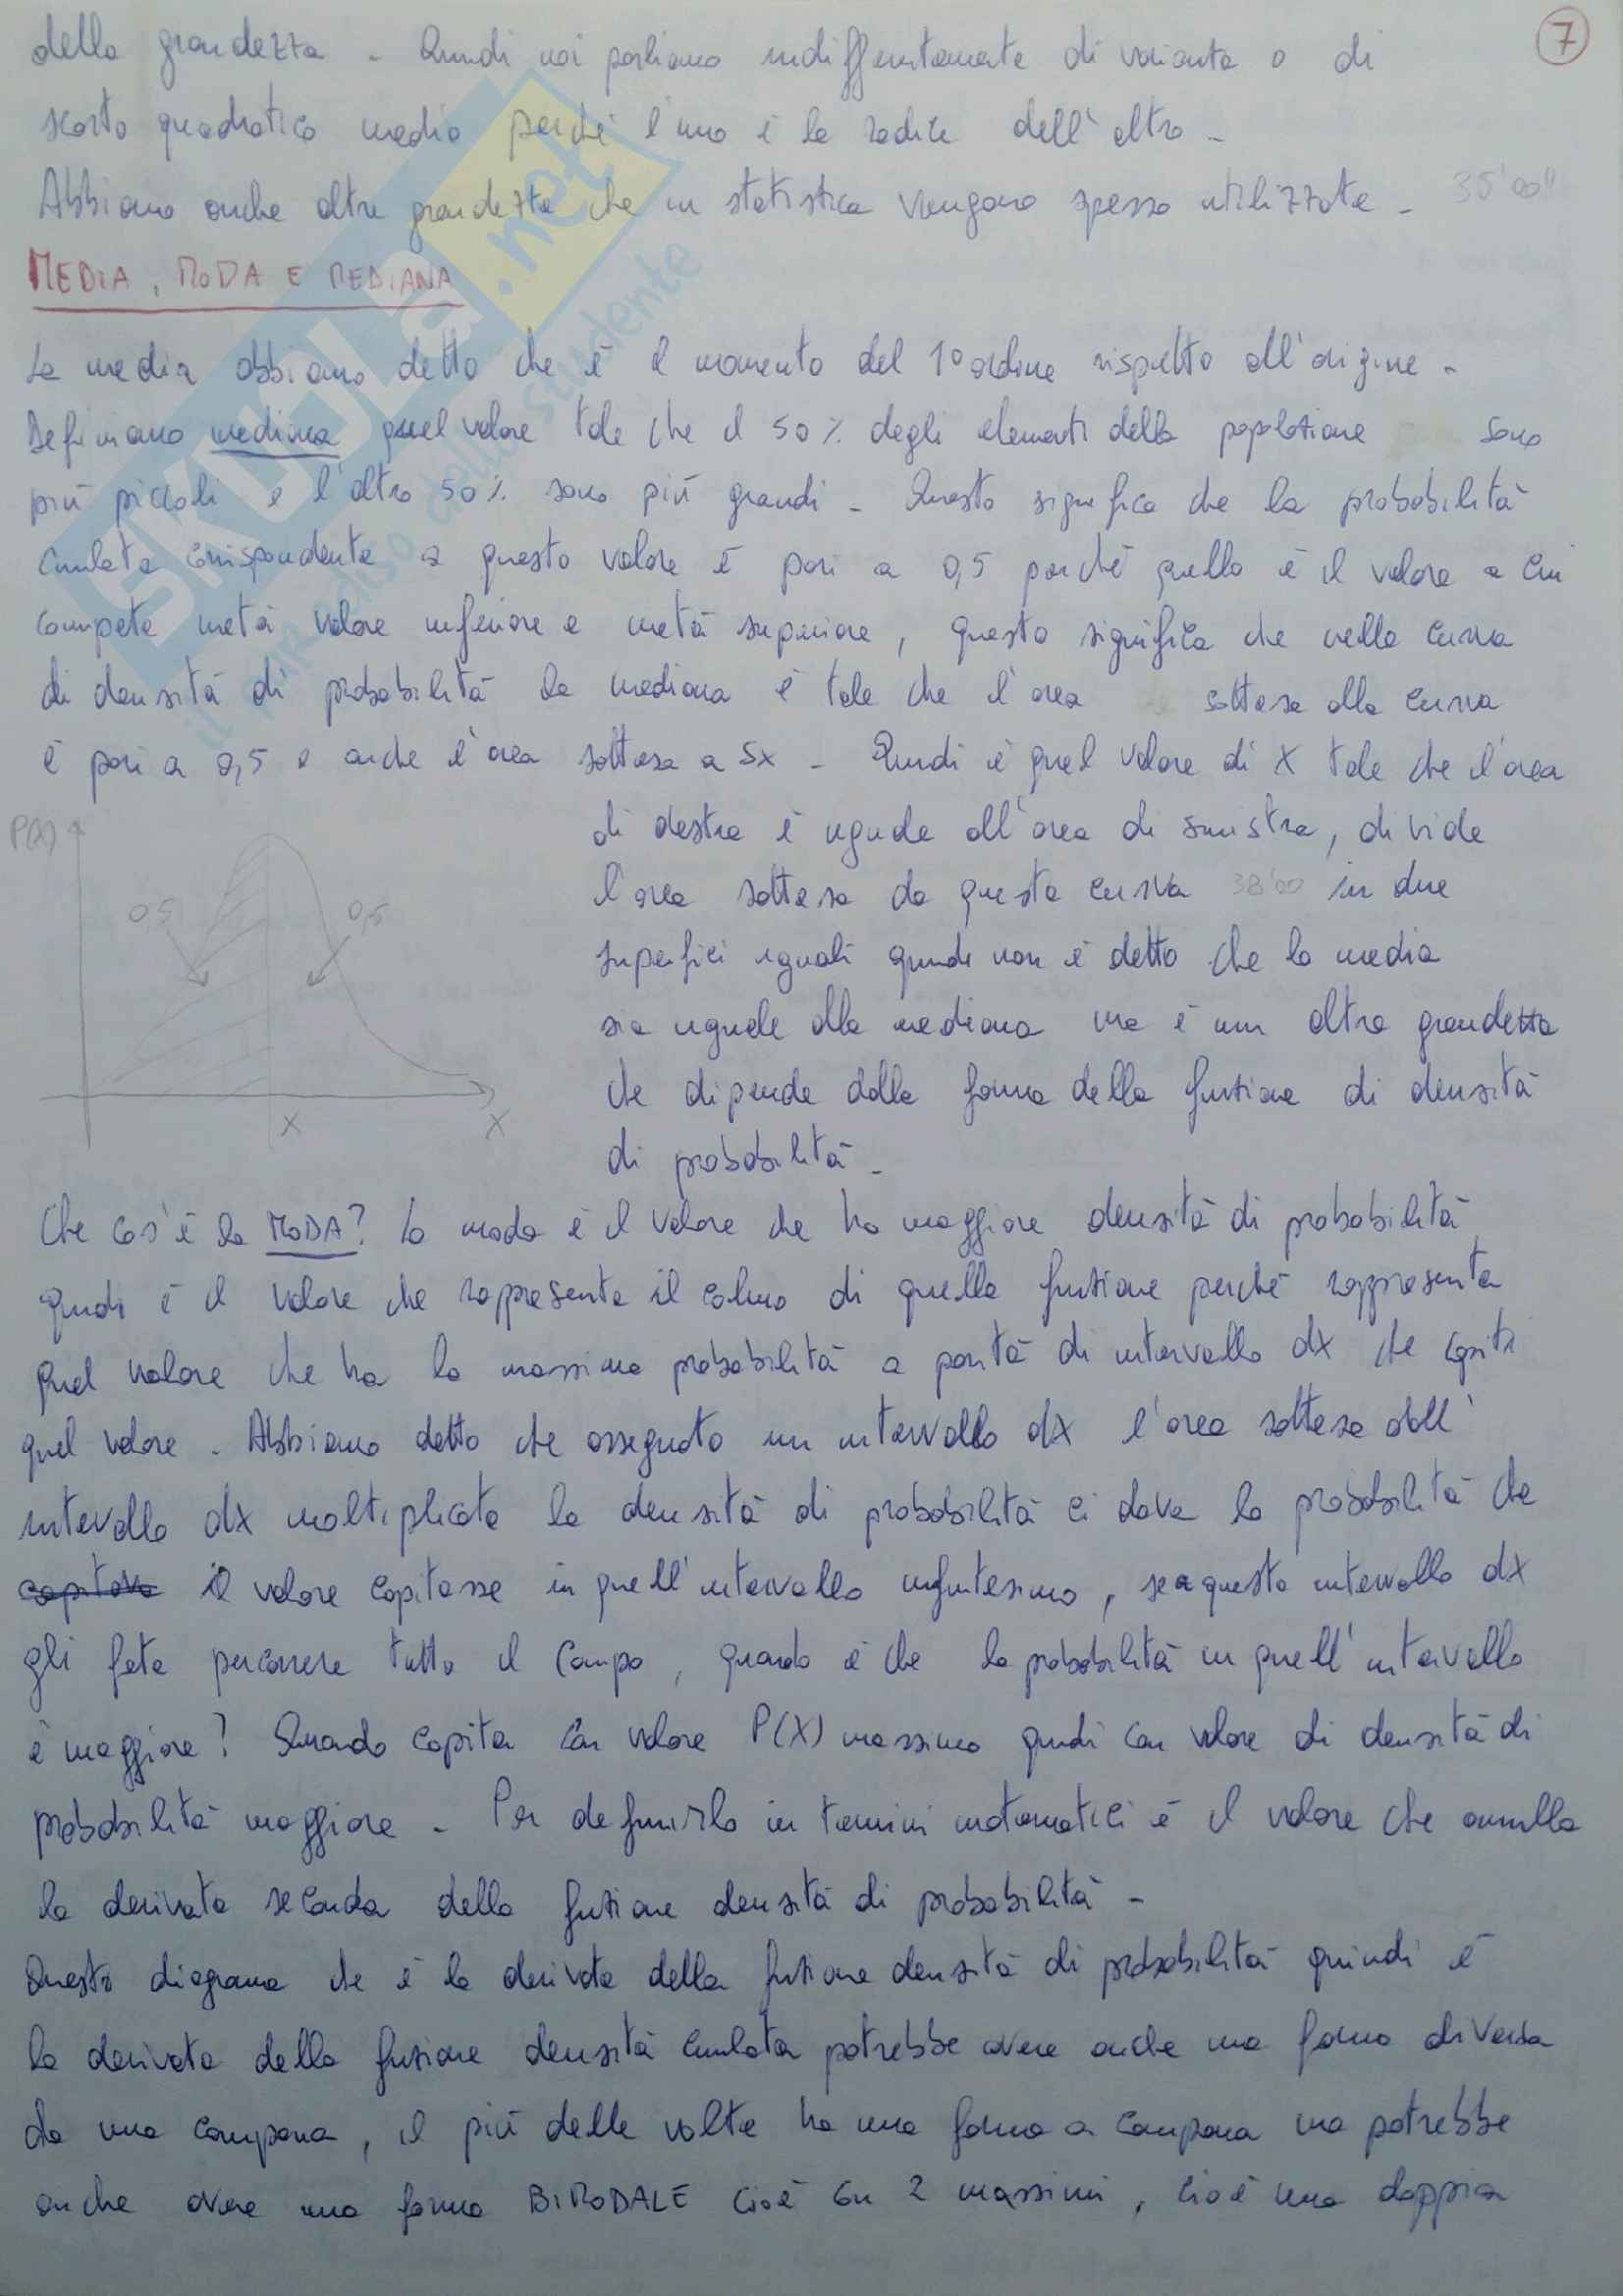 7
della grandezza - Quindi noi parliamo indifferentemente di varianza o di
scarto quadratico medio perché l'uno è la radice dell'altro -
Abbiamo anche altre grandezze che in statistica vengono spesso utilizzate - 35'00"
MEDIA, MODA E MEDIANA
La media abbiamo detto che è il momento del 1° ordine rispetto all'origine -
Definiamo mediana quel valore tale che il 50% degli elementi della popolazione sono
più piccoli e l'altro 50% sono più grandi - Questo significa che la probabilità
cumulata corrispondente a questo valore è pari a 0,5 perché quello è il valore a cui
compete metà valore inferiore e metà superiore, questo significa che nella curva
di densità di probabilità la mediana è tale che l'area sottesa alla curva
è pari a 0,5 e anche l'area sottesa a Sx - Quindi è quel valore di X tale che l'area
di destra è uguale all'area di sinistra, divide
l'area sottesa da questa curva 38'00 in due
superfici uguali quindi non è detto che la media
sia uguale alla mediana ma è un altra grandezza
che dipende dalla forma della funzione di densità
di probabilità -
P(X)
0,5
0,5
X
X
Che cos'è la MODA? La moda è il valore che ha maggiore densità di probabilità
quindi è il valore che rappresenta il colmo di quella funzione perché rappresenta
quel valore che ha la massima probabilità a parità di intervallo dx che capiti
quel valore - Abbiamo detto che assegnato un intervallo dx l'area sottesa dall'
intervallo dx moltiplicato la densità di probabilità ci dava la probabilità che
capitava il valore capitasse in quell'intervallo infinitesimo, se a questo intervallo dx
gli fate percorrere tutto il campo, quando è che la probabilità in quell'intervallo
è maggiore? Quando capita con valore P(X) massimo quindi con valore di densità di
probabilità maggiore - Per definirlo in termini matematici è il valore che annulla
la derivata seconda della funzione densità di probabilità -
Questo diagramma che è la derivata della funzione densità di probabilità quindi è
la derivata della funzione densità cumulata potrebbe avere anche una forma diversa
da una campana, il più delle volte ha una forma a campana ma potrebbe
anche avere una forma BIMODALE cioè con 2 massimi, cioè una doppia
SKUOLA.net